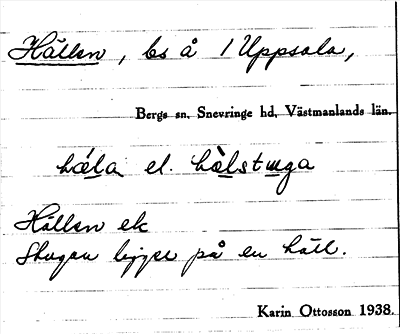 Hällen, ls å 1 Uppsala,
Bergs sn, Snevringe hd, Västmanlands län.
hǽla el. hæ̀lstuga
Hällen el.
Stugan ligger på en häll.
Karin Ottosson 1938.